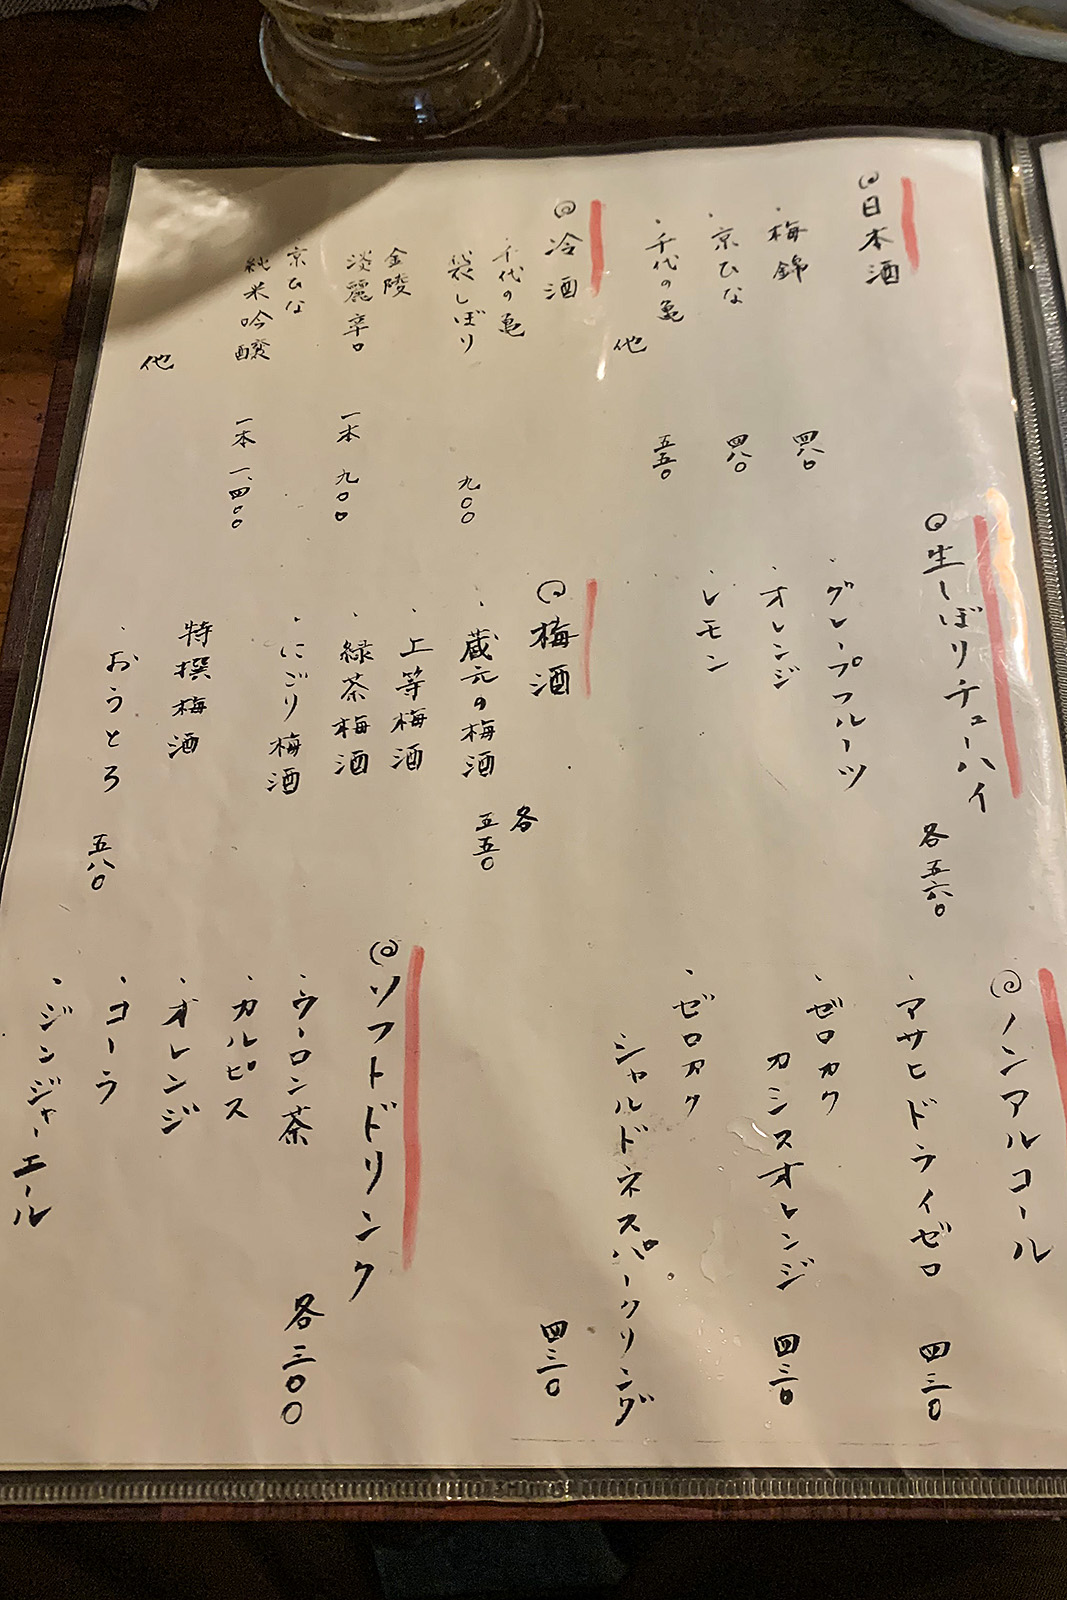 日本酒
・梅錦 四八〇
・京ひな 四八〇
・千代の亀 五五〇
他
冷酒
・千代の亀
袋しぼり 九〇〇
金陵
淡麗辛口 一本 九〇〇
京ひな
純米吟醸 一本 一、四〇〇
他
生しぼりチューハイ 各五六〇
・グレープフルーツ
・オレンジ
・レモン
梅酒 各
・蔵元の梅酒 五五〇
・上等梅酒
・緑茶梅酒
・にごり梅酒
特撰梅酒
・おうとろ 五八〇
ノンアルコール
・アサヒドライゼロ 四三〇
・ゼロカク
カシスオレンジ 四三〇
・ゼロカク
シャルドネスパークリング
四三〇
ソフトドリンク
・ウーロン茶 各三〇〇
・カルピス
・オレンジ
・コーラ
・ジンジャーエール